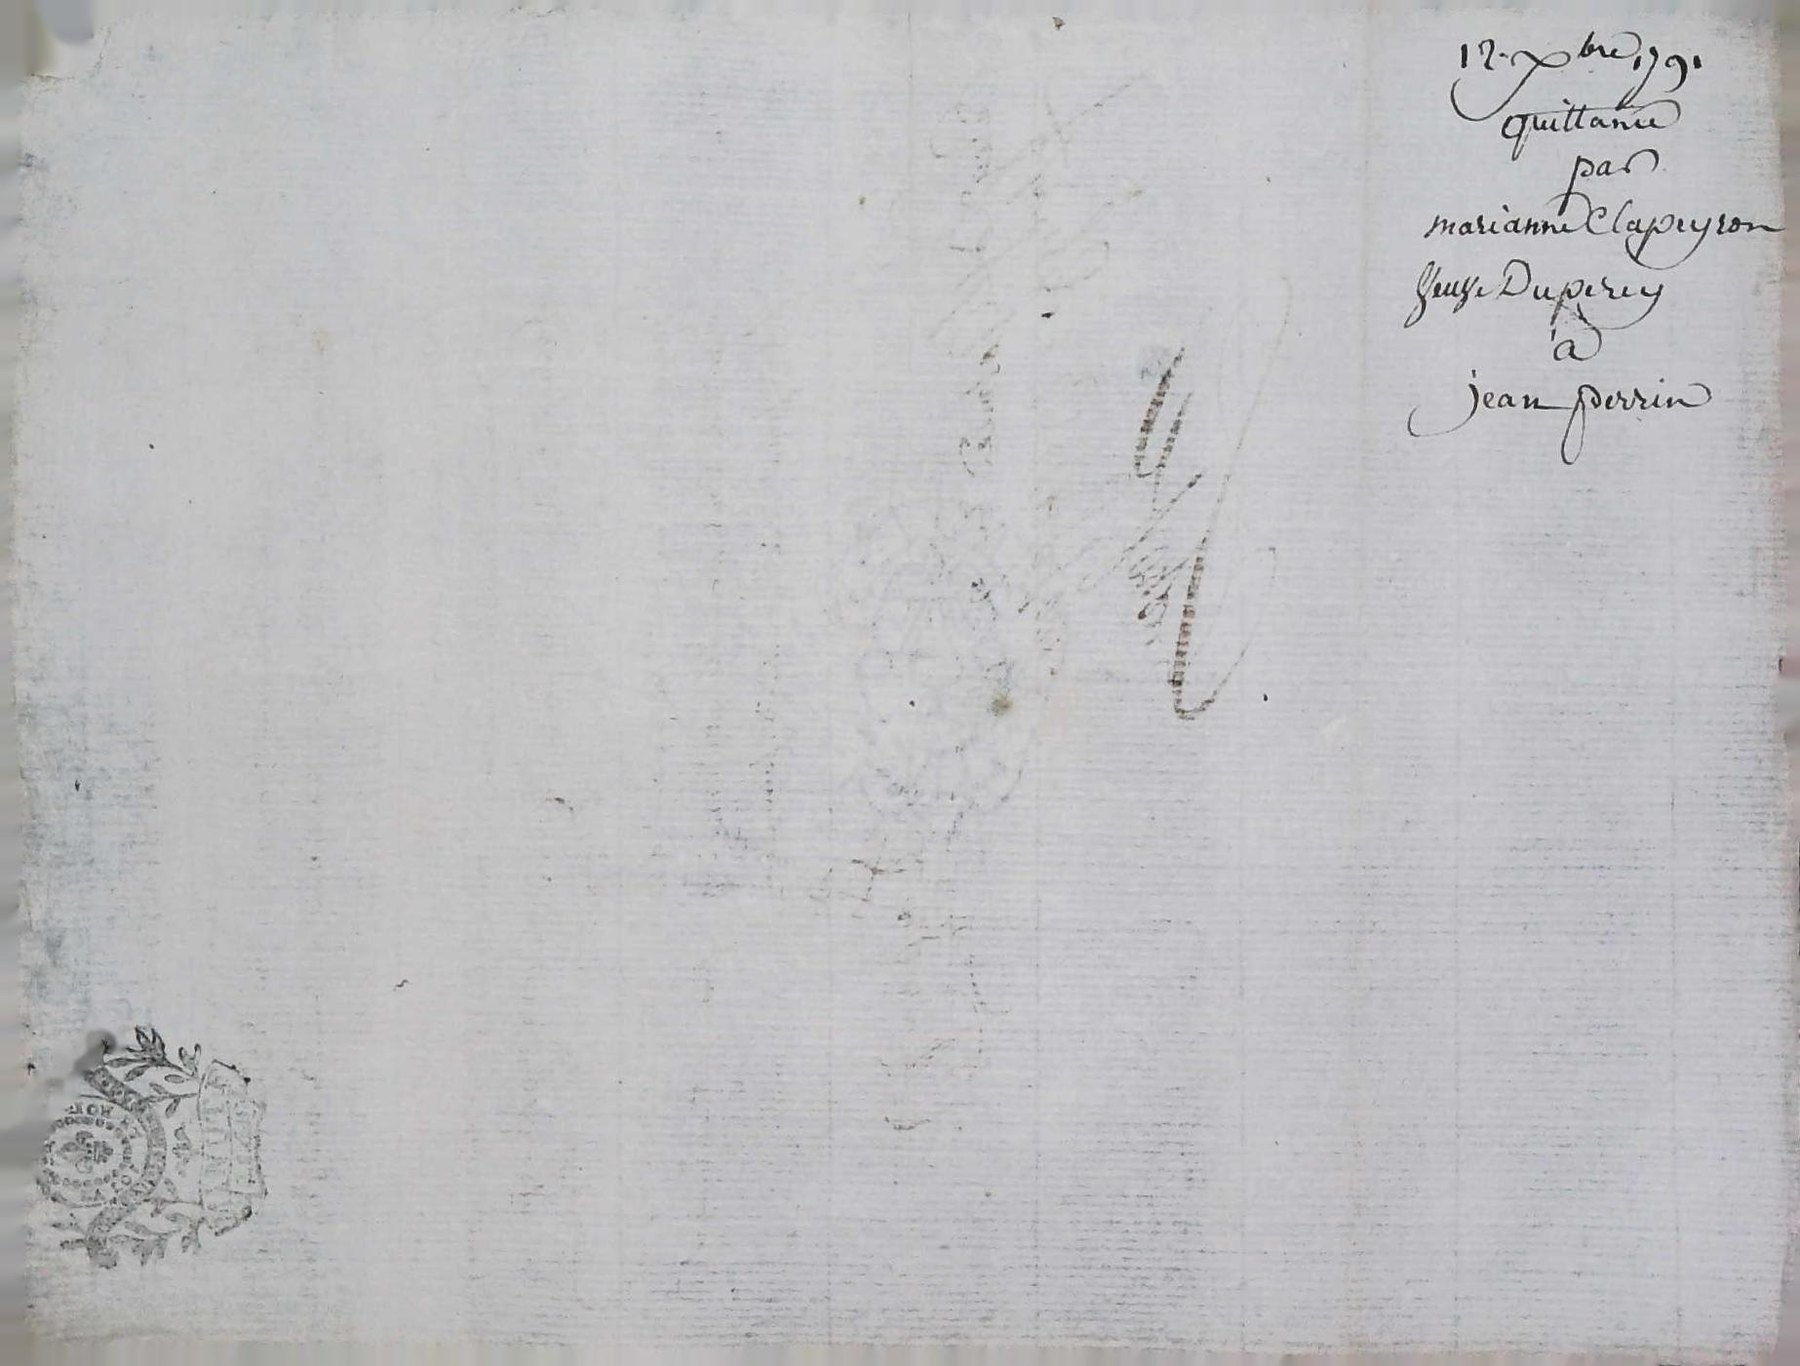 12. Xbre 1791
quittance
par
marianne Clapeyron
veuve Duperey
à
jean perrin